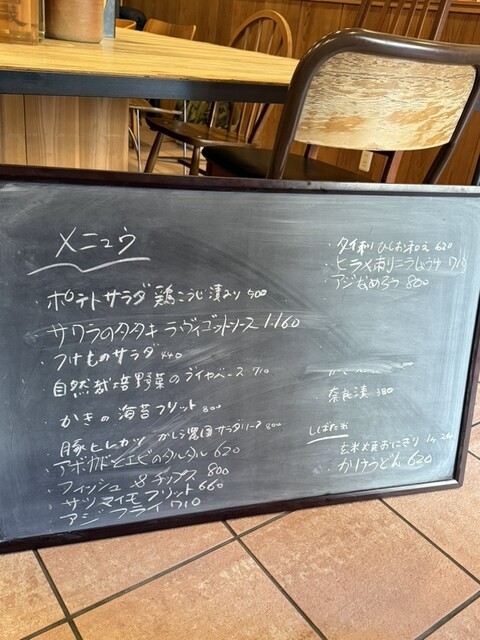 メニュウ
・ポテトサラダ 鶏こうじ漬入り 500
・サワラのタタキ ラヴィゴットソース 1.160
・つけものサラダ 440
・自然栽培野菜の 710
・かきの海苔フリット 800
・豚ヒレカツ かしら農園サラダソース 800
・アボカドとエビのタルタル 620
・フィッシュ&チップス 800
・サツマイモフリット 660
・アジフライ 710
・タイ刺 ひしお和え 620
・ヒラメ刺 ニラしょうゆ 710
・アジなめろう 800
・奈良漬 380
玄米焼おにぎり
・かけうどん 620